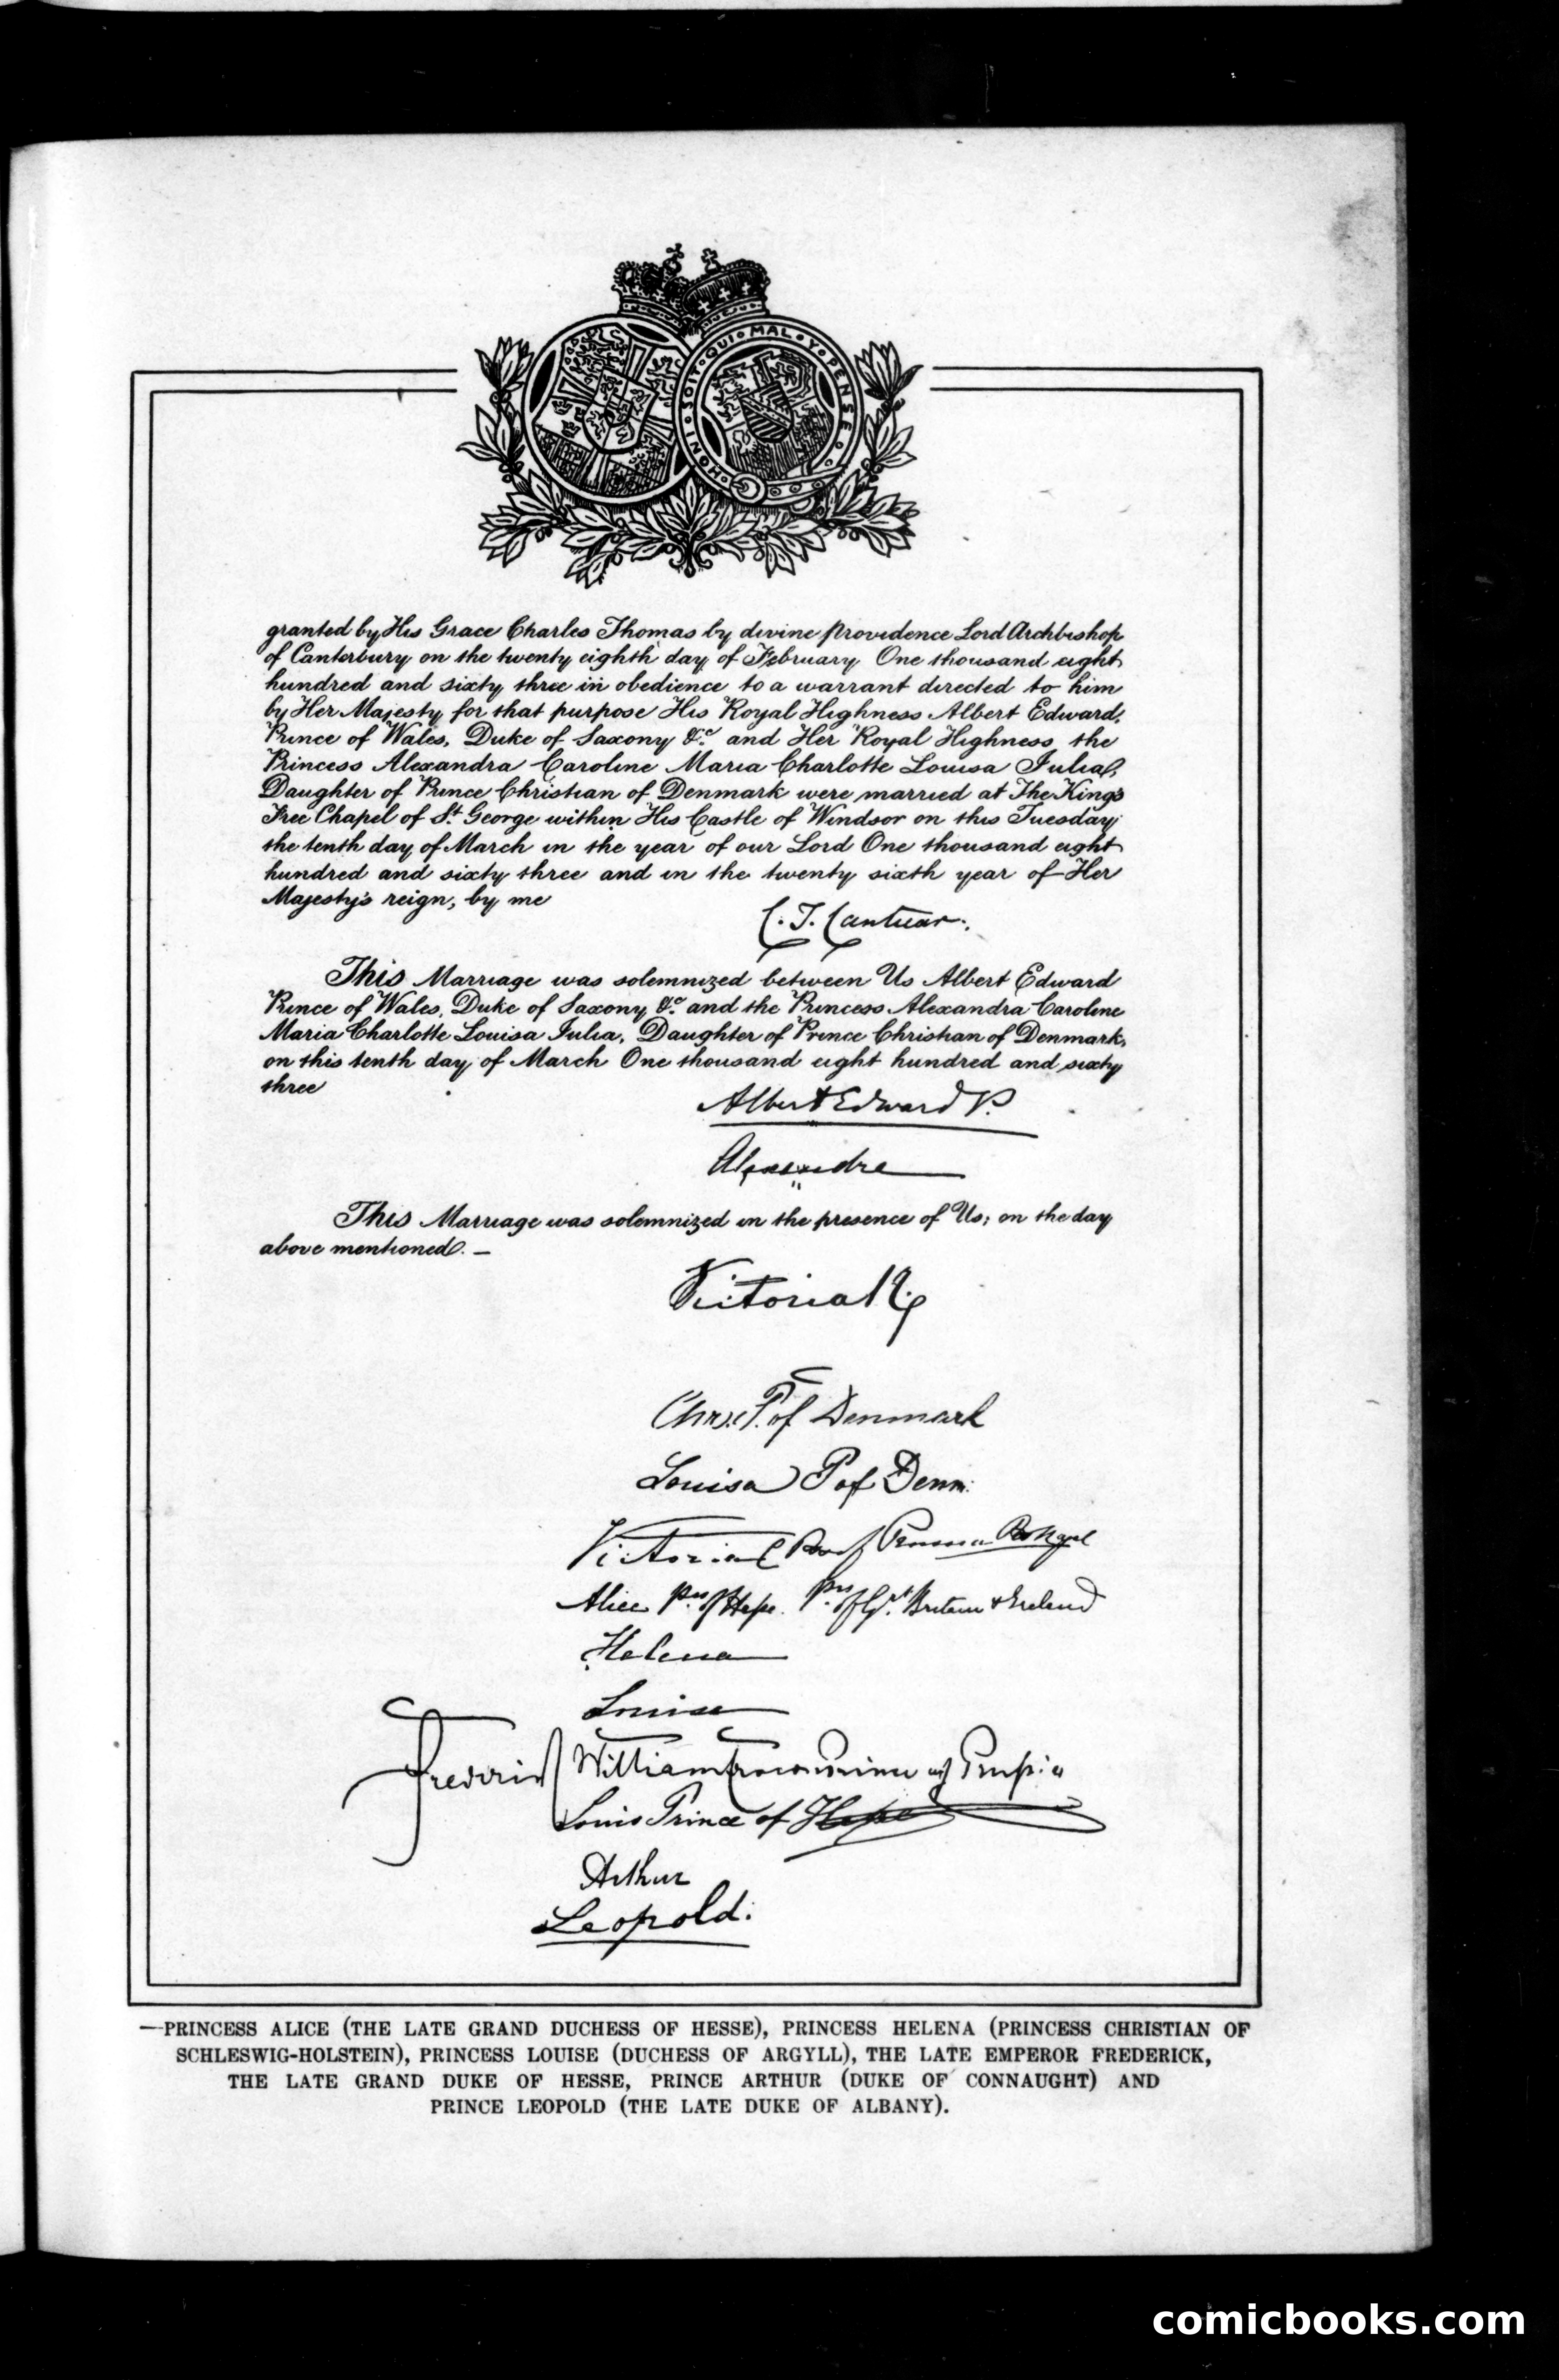 HONI · SOIT · QUI · MAL · Y · PENSE
granted by His Grace Charles Thomas by divine providence Lord Archbishop
of Canterbury on the twenty eighth day of February One thousand eight
hundred and sixty three in obedience to a warrant directed to him
by Her Majesty for that purpose His Royal Highness Albert Edward,
Prince of Wales, Duke of Saxony &c. and Her Royal Highness the
Princess Alexandra Caroline Maria Charlotte Louisa Julia,
Daughter of Prince Christian of Denmark were married at The King's
Free Chapel of St. George within His Castle of Windsor on this Tuesday
the tenth day of March in the year of our Lord One thousand eight
hundred and sixty three and in the twenty sixth year of Her
Majesty's reign, by me
C. T. Cantuar:
This Marriage was solemnized between Us Albert Edward
Prince of Wales, Duke of Saxony &c. and the Princess Alexandra Caroline
Maria Charlotte Louisa Julia, Daughter of Prince Christian of Denmark,
on this tenth day of March One thousand eight hundred and sixty
three
Albert Edward P.
Alexandra
This Marriage was solemnized in the presence of Us; on the day
above mentioned. —
Victoria R.
P. of Denmark
Louisa P of Denm.
Victoria
Alice Pss of Hesse. Pss of Gt. Britain & Ireland
Helena
Louise
Frederick William Crown Prince of Prussia
Louis Prince of Hesse
Arthur
Leopold.
—PRINCESS ALICE (THE LATE GRAND DUCHESS OF HESSE), PRINCESS HELENA (PRINCESS CHRISTIAN OF
SCHLESWIG-HOLSTEIN), PRINCESS LOUISE (DUCHESS OF ARGYLL), THE LATE EMPEROR FREDERICK,
THE LATE GRAND DUKE OF HESSE, PRINCE ARTHUR (DUKE OF CONNAUGHT) AND
PRINCE LEOPOLD (THE LATE DUKE OF ALBANY).
comicbooks.com